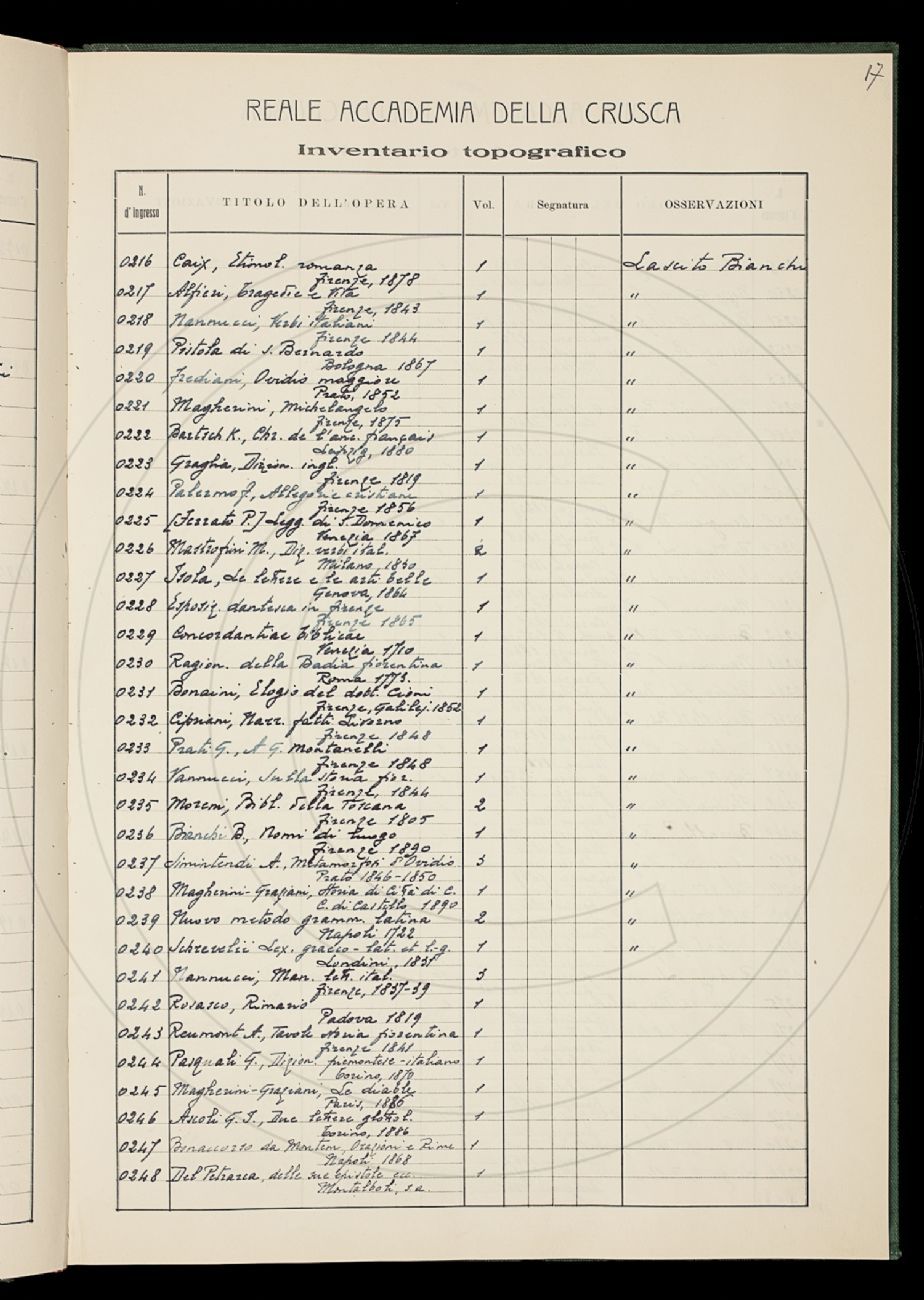 17
REALE ACCADEMIA DELLA CRUSCA
Inventario topografico
N. d'Ingresso TITOLO DELL'OPERA Vol. Segnatura OSSERVAZIONI
0216 Caix, Etimol. romanza 1 Lascito Bianchi
Firenze, 1878
0217 Alfieri, Tragedie e Vita 1 "
Firenze, 1843
0218 Nannucci, Verbi italiani 1 "
Firenze 1844
0219 Pistola di S. Bernardo 1 "
Bologna 1867
0220 Frediani, Ovidio maggiore 1 "
Prato, 1852
0221 Magherini, Michelangelo 1 "
Firenze, 1875
0222 Bartsch K., Chr. de l'anc. français 1 "
Leipzig, 1880
0223 Graglia, Dizion. ingl. 1 "
Firenze 1819
0224 Palermo F., Allegorie cristiane 1 "
Firenze 1856
0225 [Ferrato P.] Legg. di S. Domenico 1 "
Venezia 1867
0226 Mastrofini M., Diz. verbi ital. 2 "
Milano, 1830
0227 Isola, Le lettere e le arti belle 1 "
Genova, 1864
0228 Esposiz. dantesca in Firenze 1 "
Firenze 1865
0229 Concordantiae biblicae 1 "
Venezia 1710
0230 Ragion. della Badia fiorentina 1 "
Roma 1773.
0231 Bonaini, Elogio del dott. Cioni 1 "
Firenze, Galilej. 1852
0232 Cipriani, Narr. fatti Livorno 1 "
Firenze 1848
0233 Prati G., A G. Montanelli 1 "
Firenze 1848
0234 Vannucci, Sulla storia fior. 1 "
Firenze, 1844
0235 Moreni, Bibl. della Toscana 2 "
Firenze 1805
0236 Bianchi B., Nomi di luogo 1 "
Firenze 1890
0237 Simintendi A., Metamorfosi d'Ovidio 3 "
Prato 1846-1850
0238 Magherini-Graziani, Storia di Città di C. 1 "
C. di Castello 1890
0239 Nuovo metodo gramm. latina 2 "
Napoli 1722
0240 Schrevelii Lex. graeco-lat. et l.-g. 1 "
Londini, 1831
0241 Nannucci, Man. lett. ital. 3
Firenze, 1837-39
0242 Rosasco, Rimario 1
Padova 1819
0243 Reumont A., Tavole storia fiorentina 1
Firenze 1841
0244 Pasquali G., Dizion. piemontese-italiano 1
Torino, 1870
0245 Magherini-Graziani, Le diable 1
Paris,
0246 Ascoli G. I., Due lettere glottol. 1
Torino, 1886
0247 Bonaccorso da Montem. Orazioni e Rime 1
Napoli 1868
0248 Del Petrarca, delle sue epistole ecc. 1
s.a.